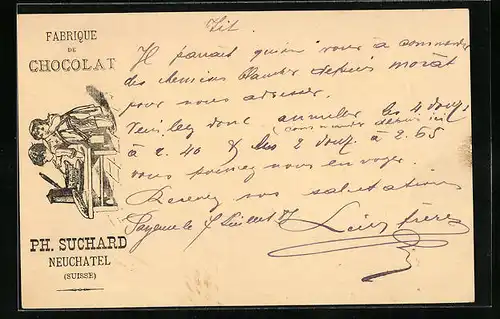 FABRIQUE
DE
CHOCOLAT
PH. SUCHARD
NEUCHATEL
(SUISSE)
Il parait qu'on vous a commander
des chemises depuis morat
pour nous adresser.
Veuillez donc annuler les 4 douz.
(commander depuis ici
à 2.40 & les 2 douz. à 2.65
vous pouvez nous envoyer.
Recevez nos salutations
Payerne Juillet frères